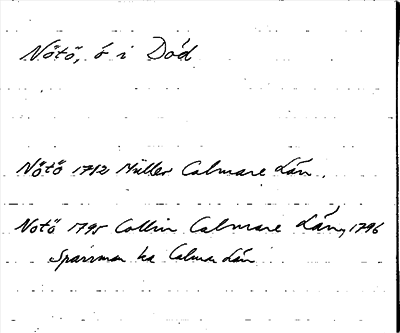 Nötö, ö i Död
Nötö 1742 Müller Calmare Län.
Nötö 1795 Collin Calmare Län, 1796
Sparrman ka Calmar Län